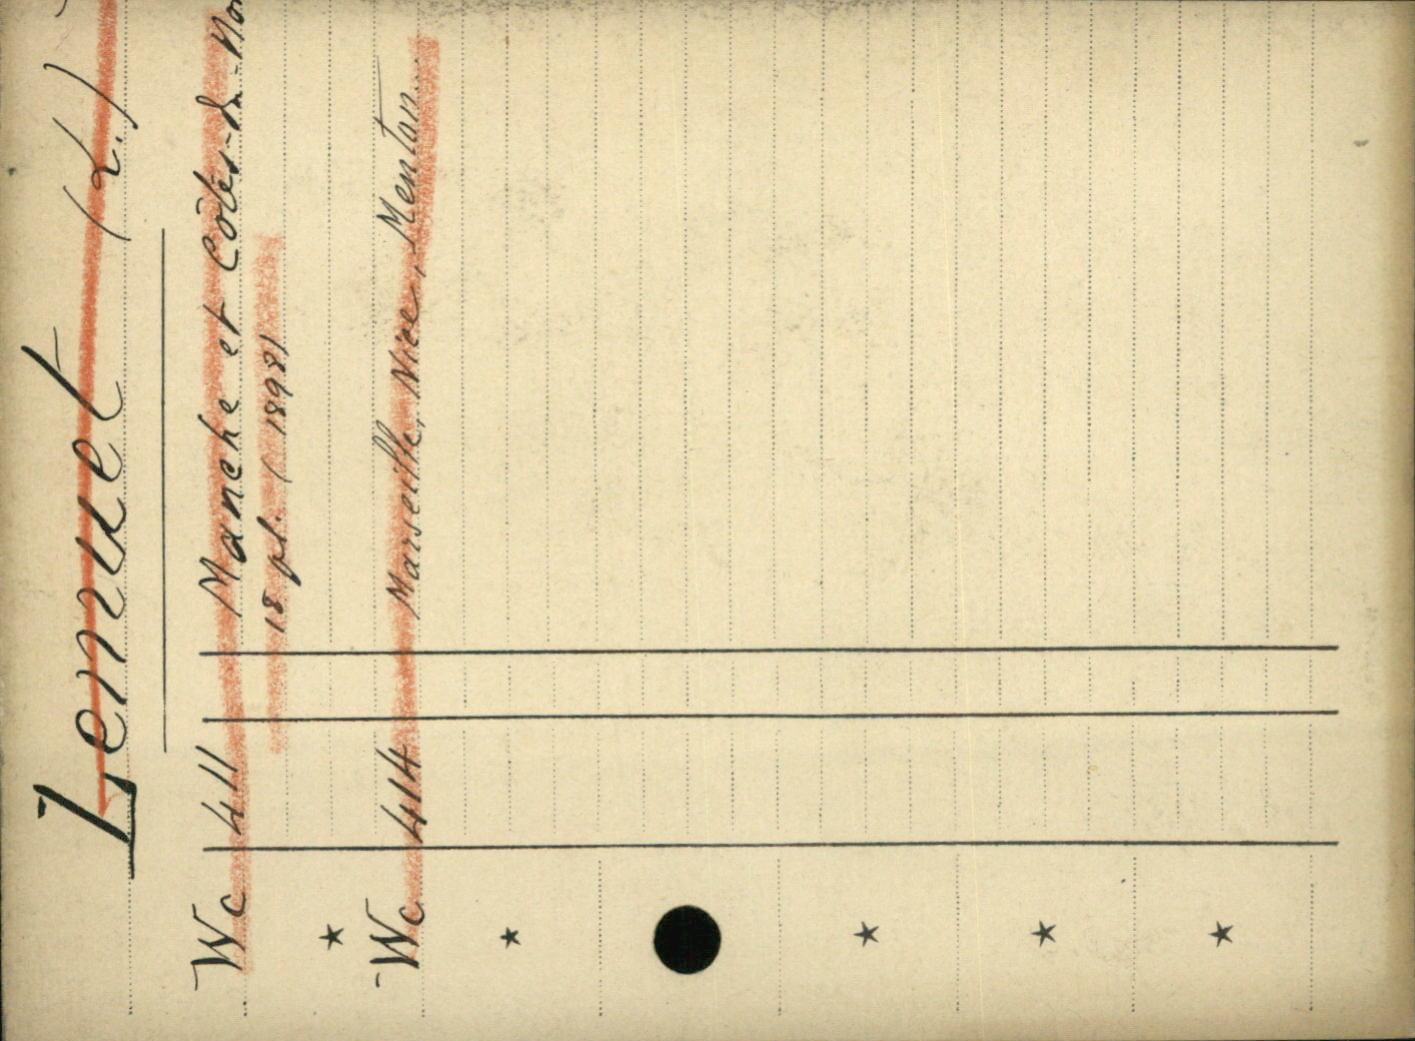 Lemuet (L.)
Wc 411 Manche et Côtes-du-No
18 pl. (1898)
Wc 414 Marseille, Nice, Menton...